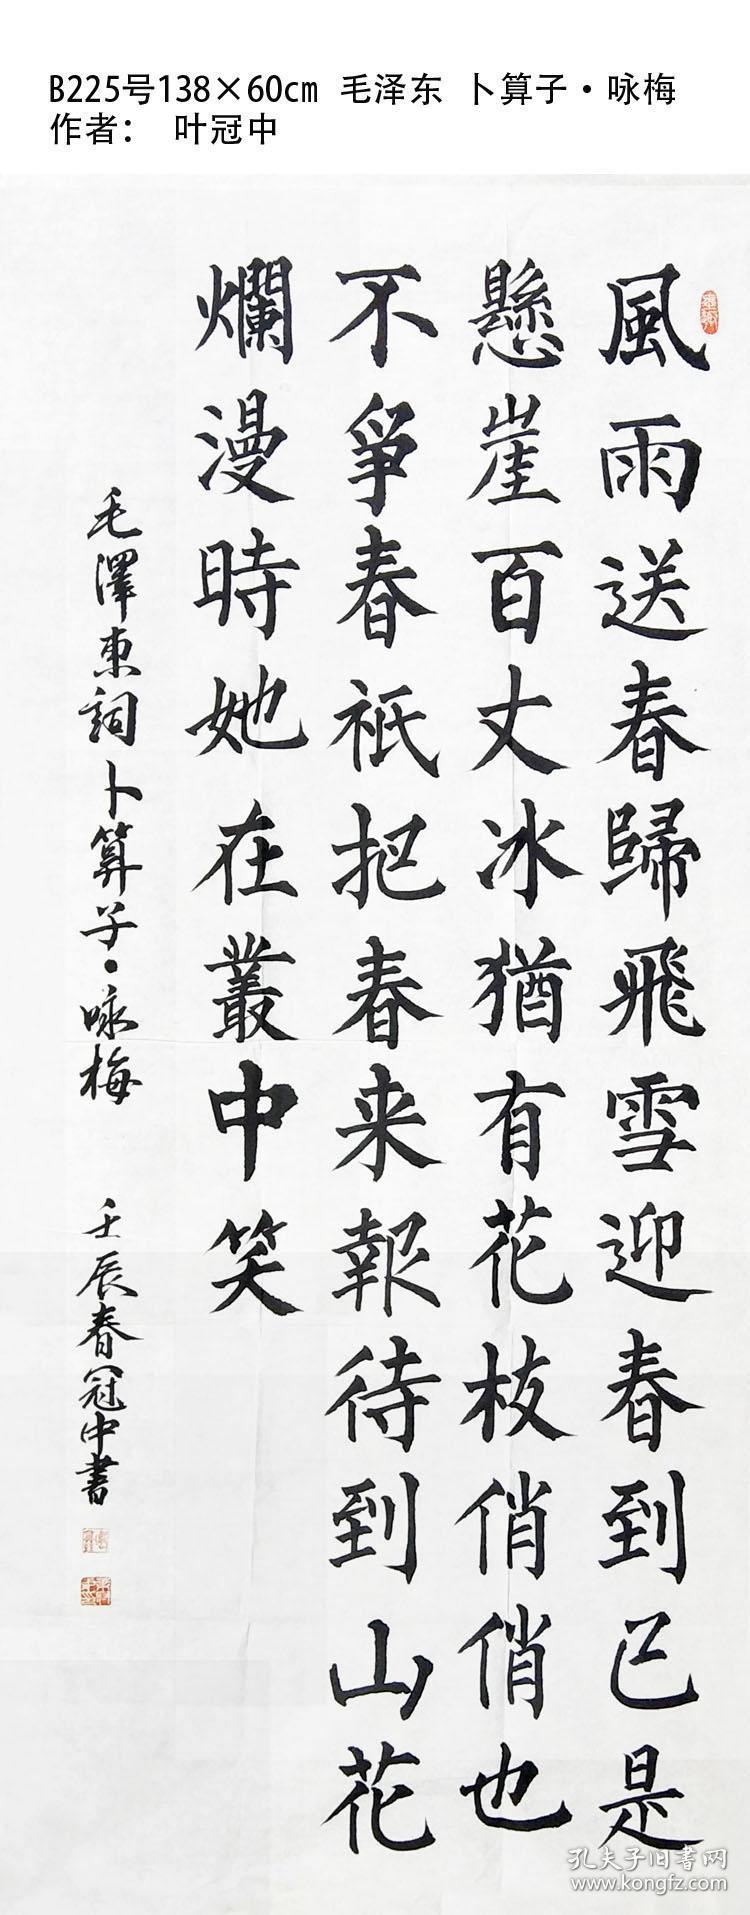 B225号138×60cm 毛泽东 卜算子·咏梅
作者： 叶冠中
風雨送春歸飛雪迎春到已是
懸崖百丈冰猶有花枝俏俏也
不爭春祇把春来報待到山花
爛漫時她在叢中笑
毛澤東詞卜算子·咏梅 壬辰春冠中書
孔夫子旧书网
www.kongfz.com